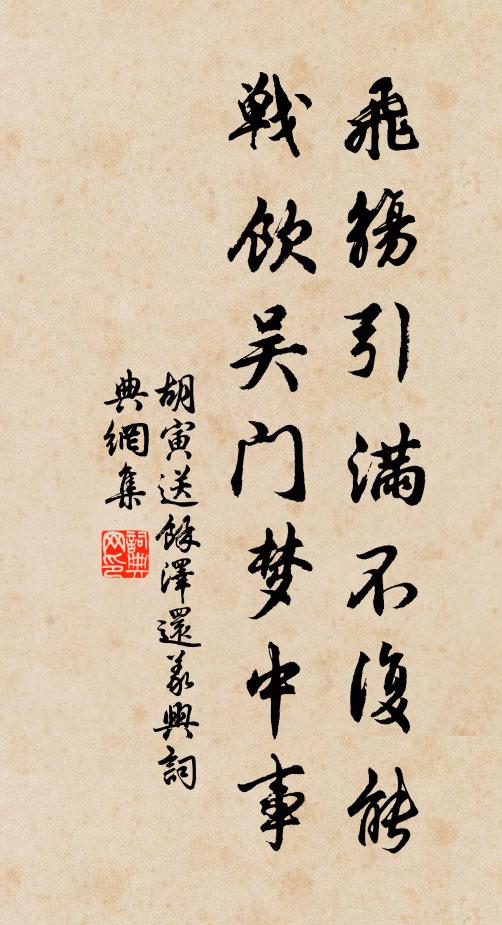 飛觴引滿不復能
戦飲吴门梦中事
胡寅送餘澤還義興詞
典網集
詞典網印